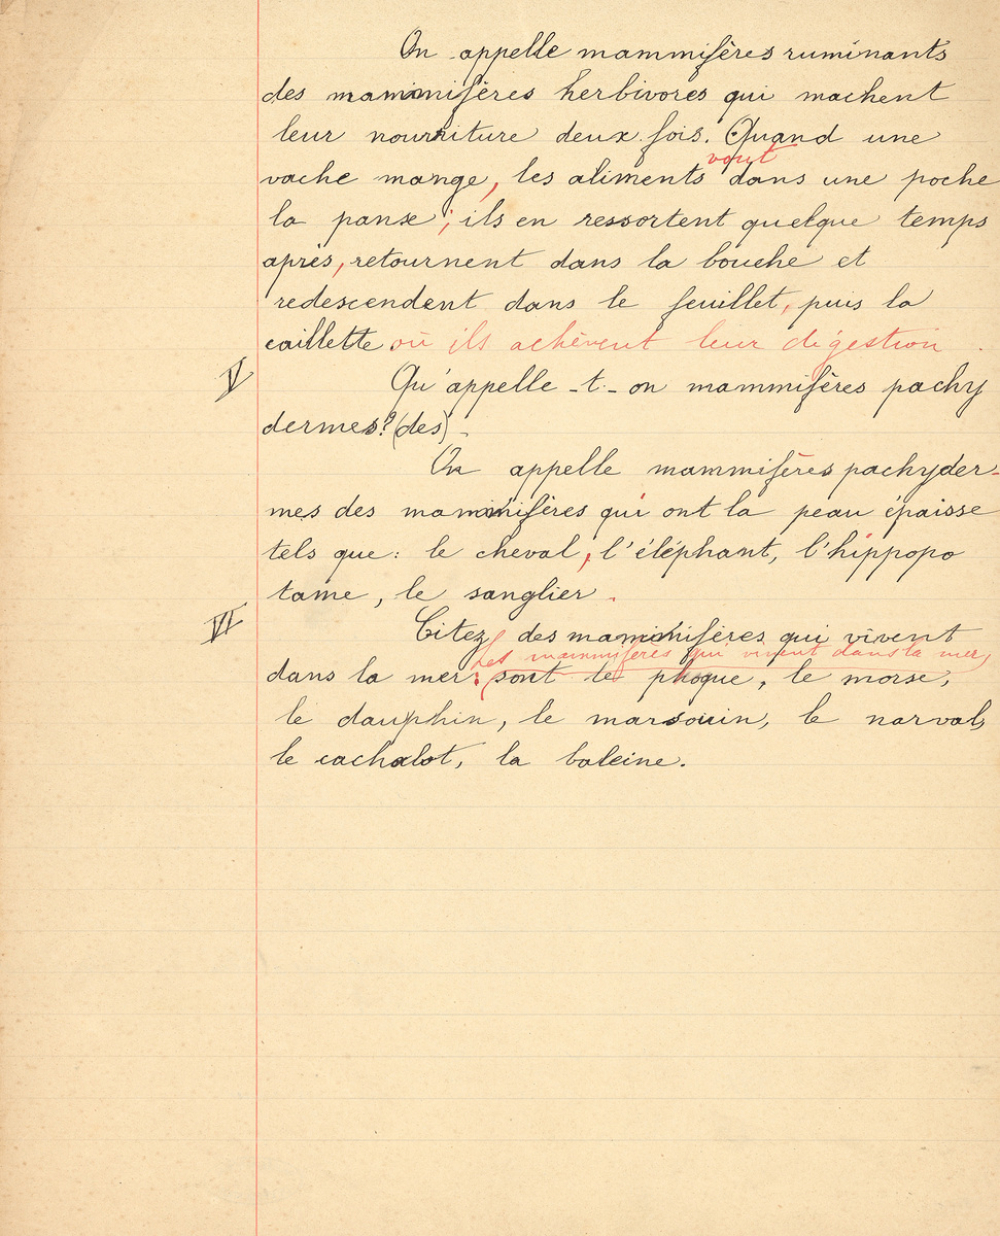 On appelle mammifères ruminants
des mammifères herbivores qui machent
leur nourriture deux fois. Quand une
vont
vache mange, les aliments dans une poche
la panse ; ils en ressortent quelque temps
après, retournent dans la bouche et
redescendent dans le feuillet, puis la
caillette où ils achèvent leur digestion
V Qu'appelle-t-on mammifères pachy
dermes? (des)
On appelle mammifères pachyder-
mes des mammifères qui ont la peau épaisse
tels que : le cheval, l'éléphant, l'hippopo
tame, le sanglier.
VI Citez des mammifères qui vivent
Les mammifères qui vivent dans la mer
dans la mer : sont le phoque, le morse,
le dauphin, le marsouin, le narval,
le cachalot, la baleine.